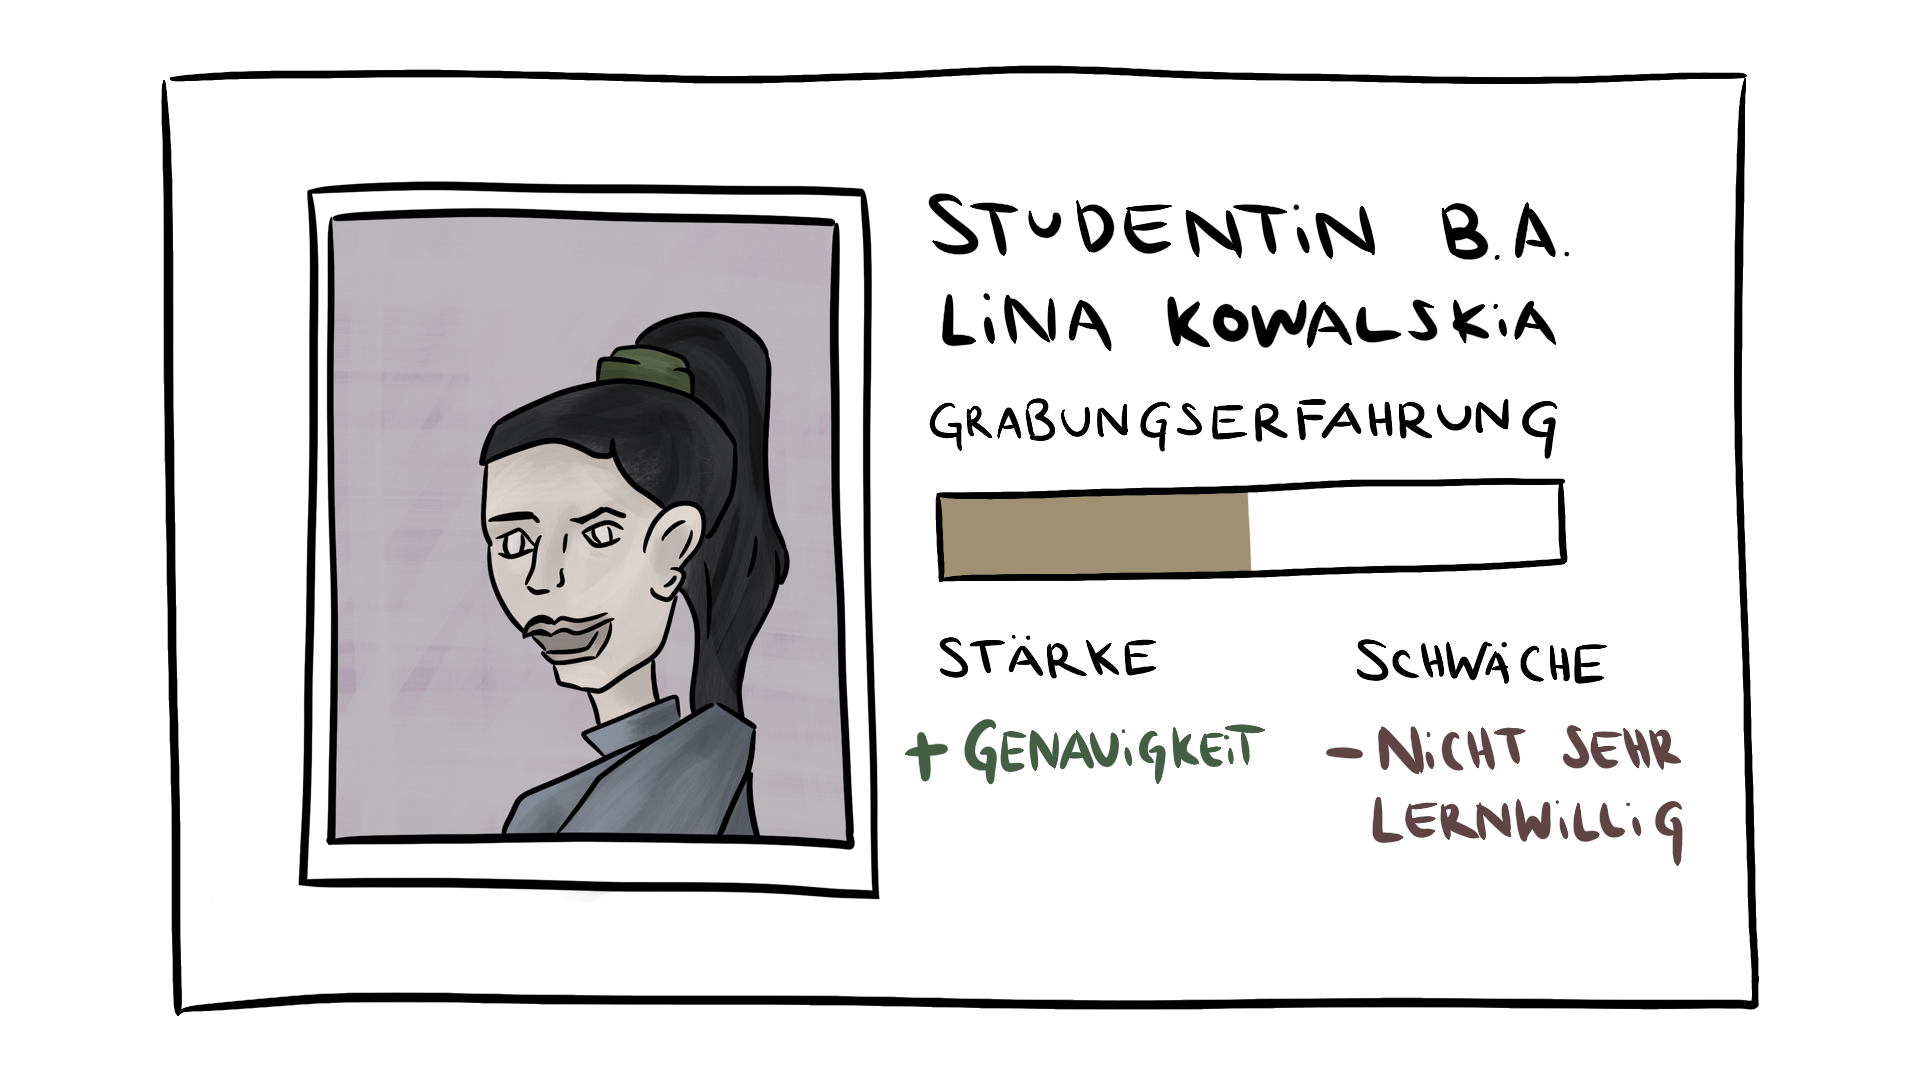 STUDENTIN B.A.
LINA KOWALSKIA
GRABUNGSERFAHRUNG
STÄRKE SCHWÄCHE
+ GENAUIGKEIT - NICHT SEHR
LERNWILLIG